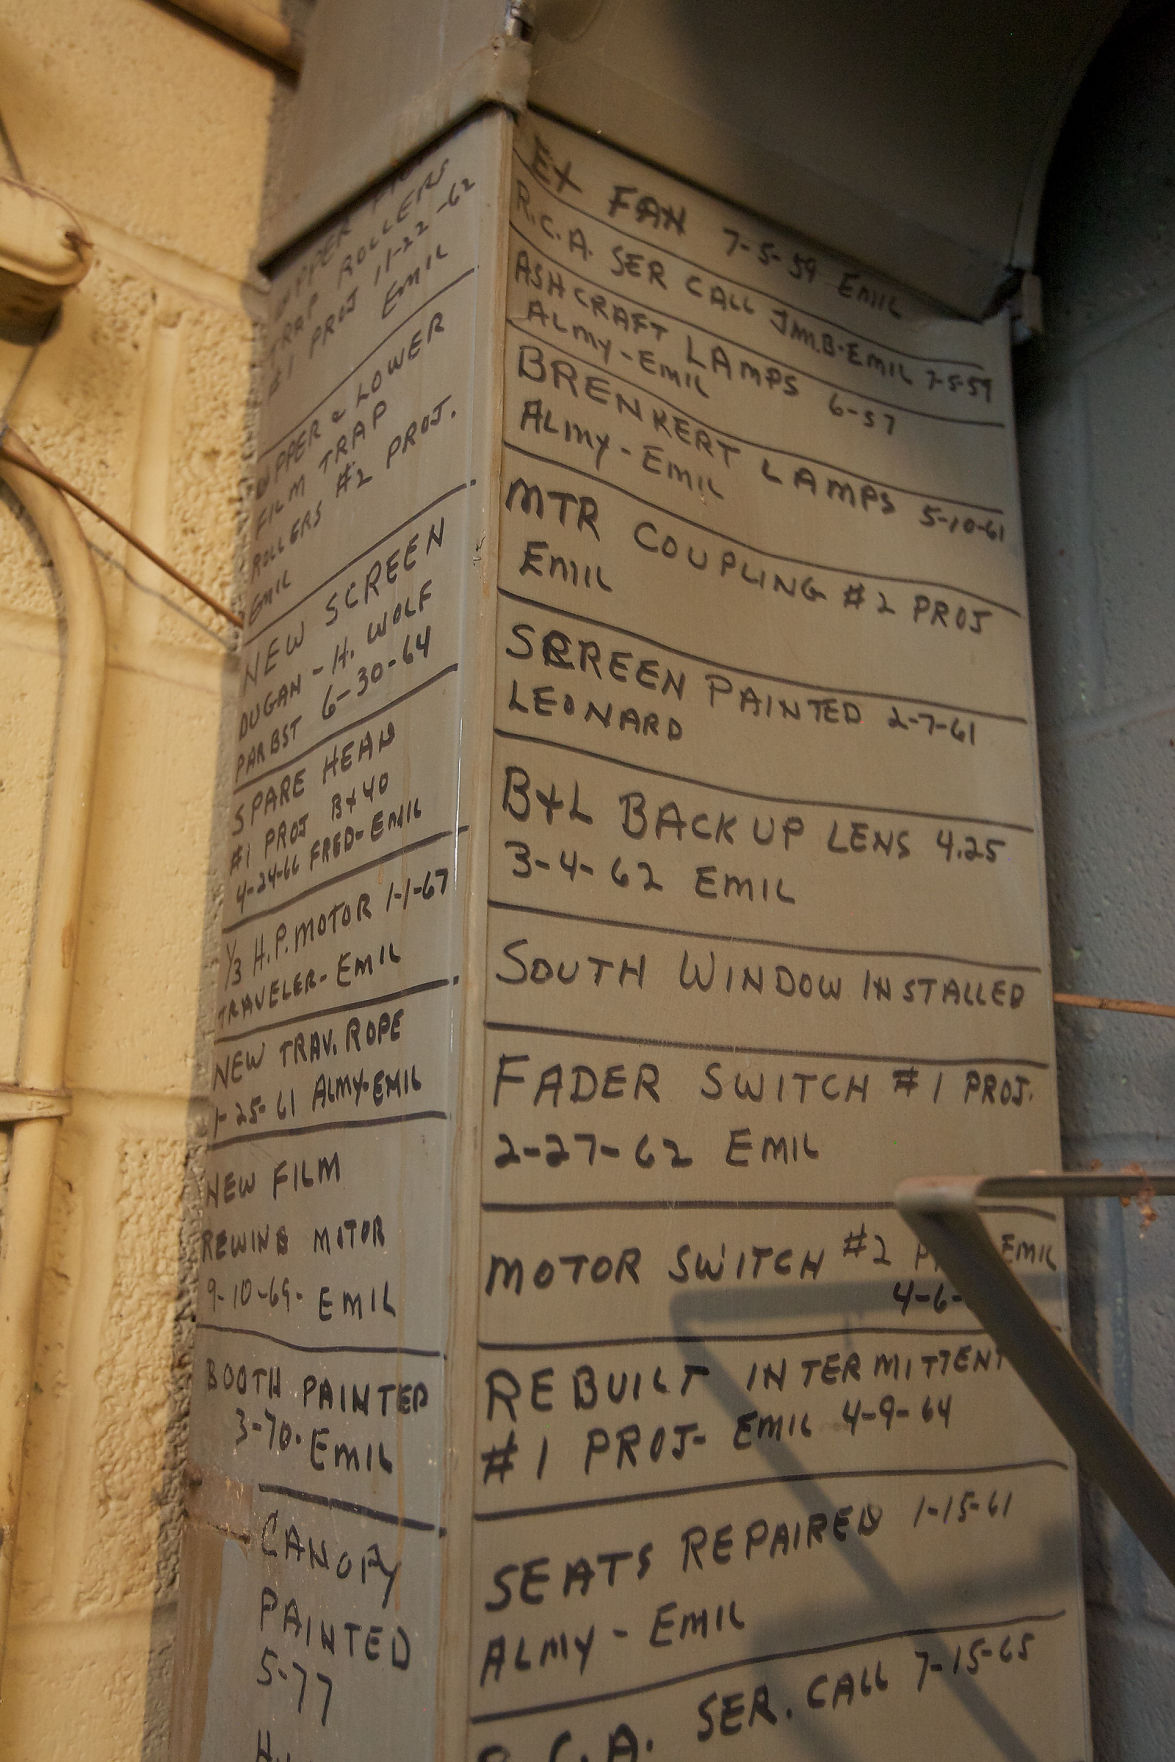 UPPER
TRAP ROLLERS
#1 PROJ 11-22-62
EMIL
UPPER & LOWER
FILM TRAP
ROLLERS #2 PROJ.
EMIL
NEW SCREEN
DUGAN - H. WOLF
PARBST 6-30-64
SPARE HEAD
#1 PROJ B+40
4-24-66 FRED-EMIL
1/3 H.P. MOTOR 1-1-67
TRAVELER-EMIL
NEW TRAV. ROPE
1-25-61 ALMY-EMIL
NEW FILM
REWIND MOTOR
9-10-69- EMIL
BOOTH PAINTED
3-70. EMIL
CANOPY
PAINTED
5-77
EX FAN 7-5-59 EMIL
R.C.A. SER CALL J.M.B-EMIL 7-5-59
ASHCRAFT LAMPS 6-57
ALMY-EMIL
BRENKERT LAMPS 5-10-61
ALMY-EMIL
MTR COUPLING #2 PROJ
EMIL
SCREEN PAINTED 2-7-61
LEONARD
B+L BACK UP LENS 4.25
3-4-62 EMIL
SOUTH WINDOW INSTALLED
FADER SWITCH #1 PROJ.
2-27-62 EMIL
MOTOR SWITCH #2 EMIL
4-6-
REBUILT INTERMITTENT
#1 PROJ- EMIL 4-9-64
SEATS REPAIRED 1-15-61
ALMY - EMIL
R.C.A. SER. CALL 7-15-65